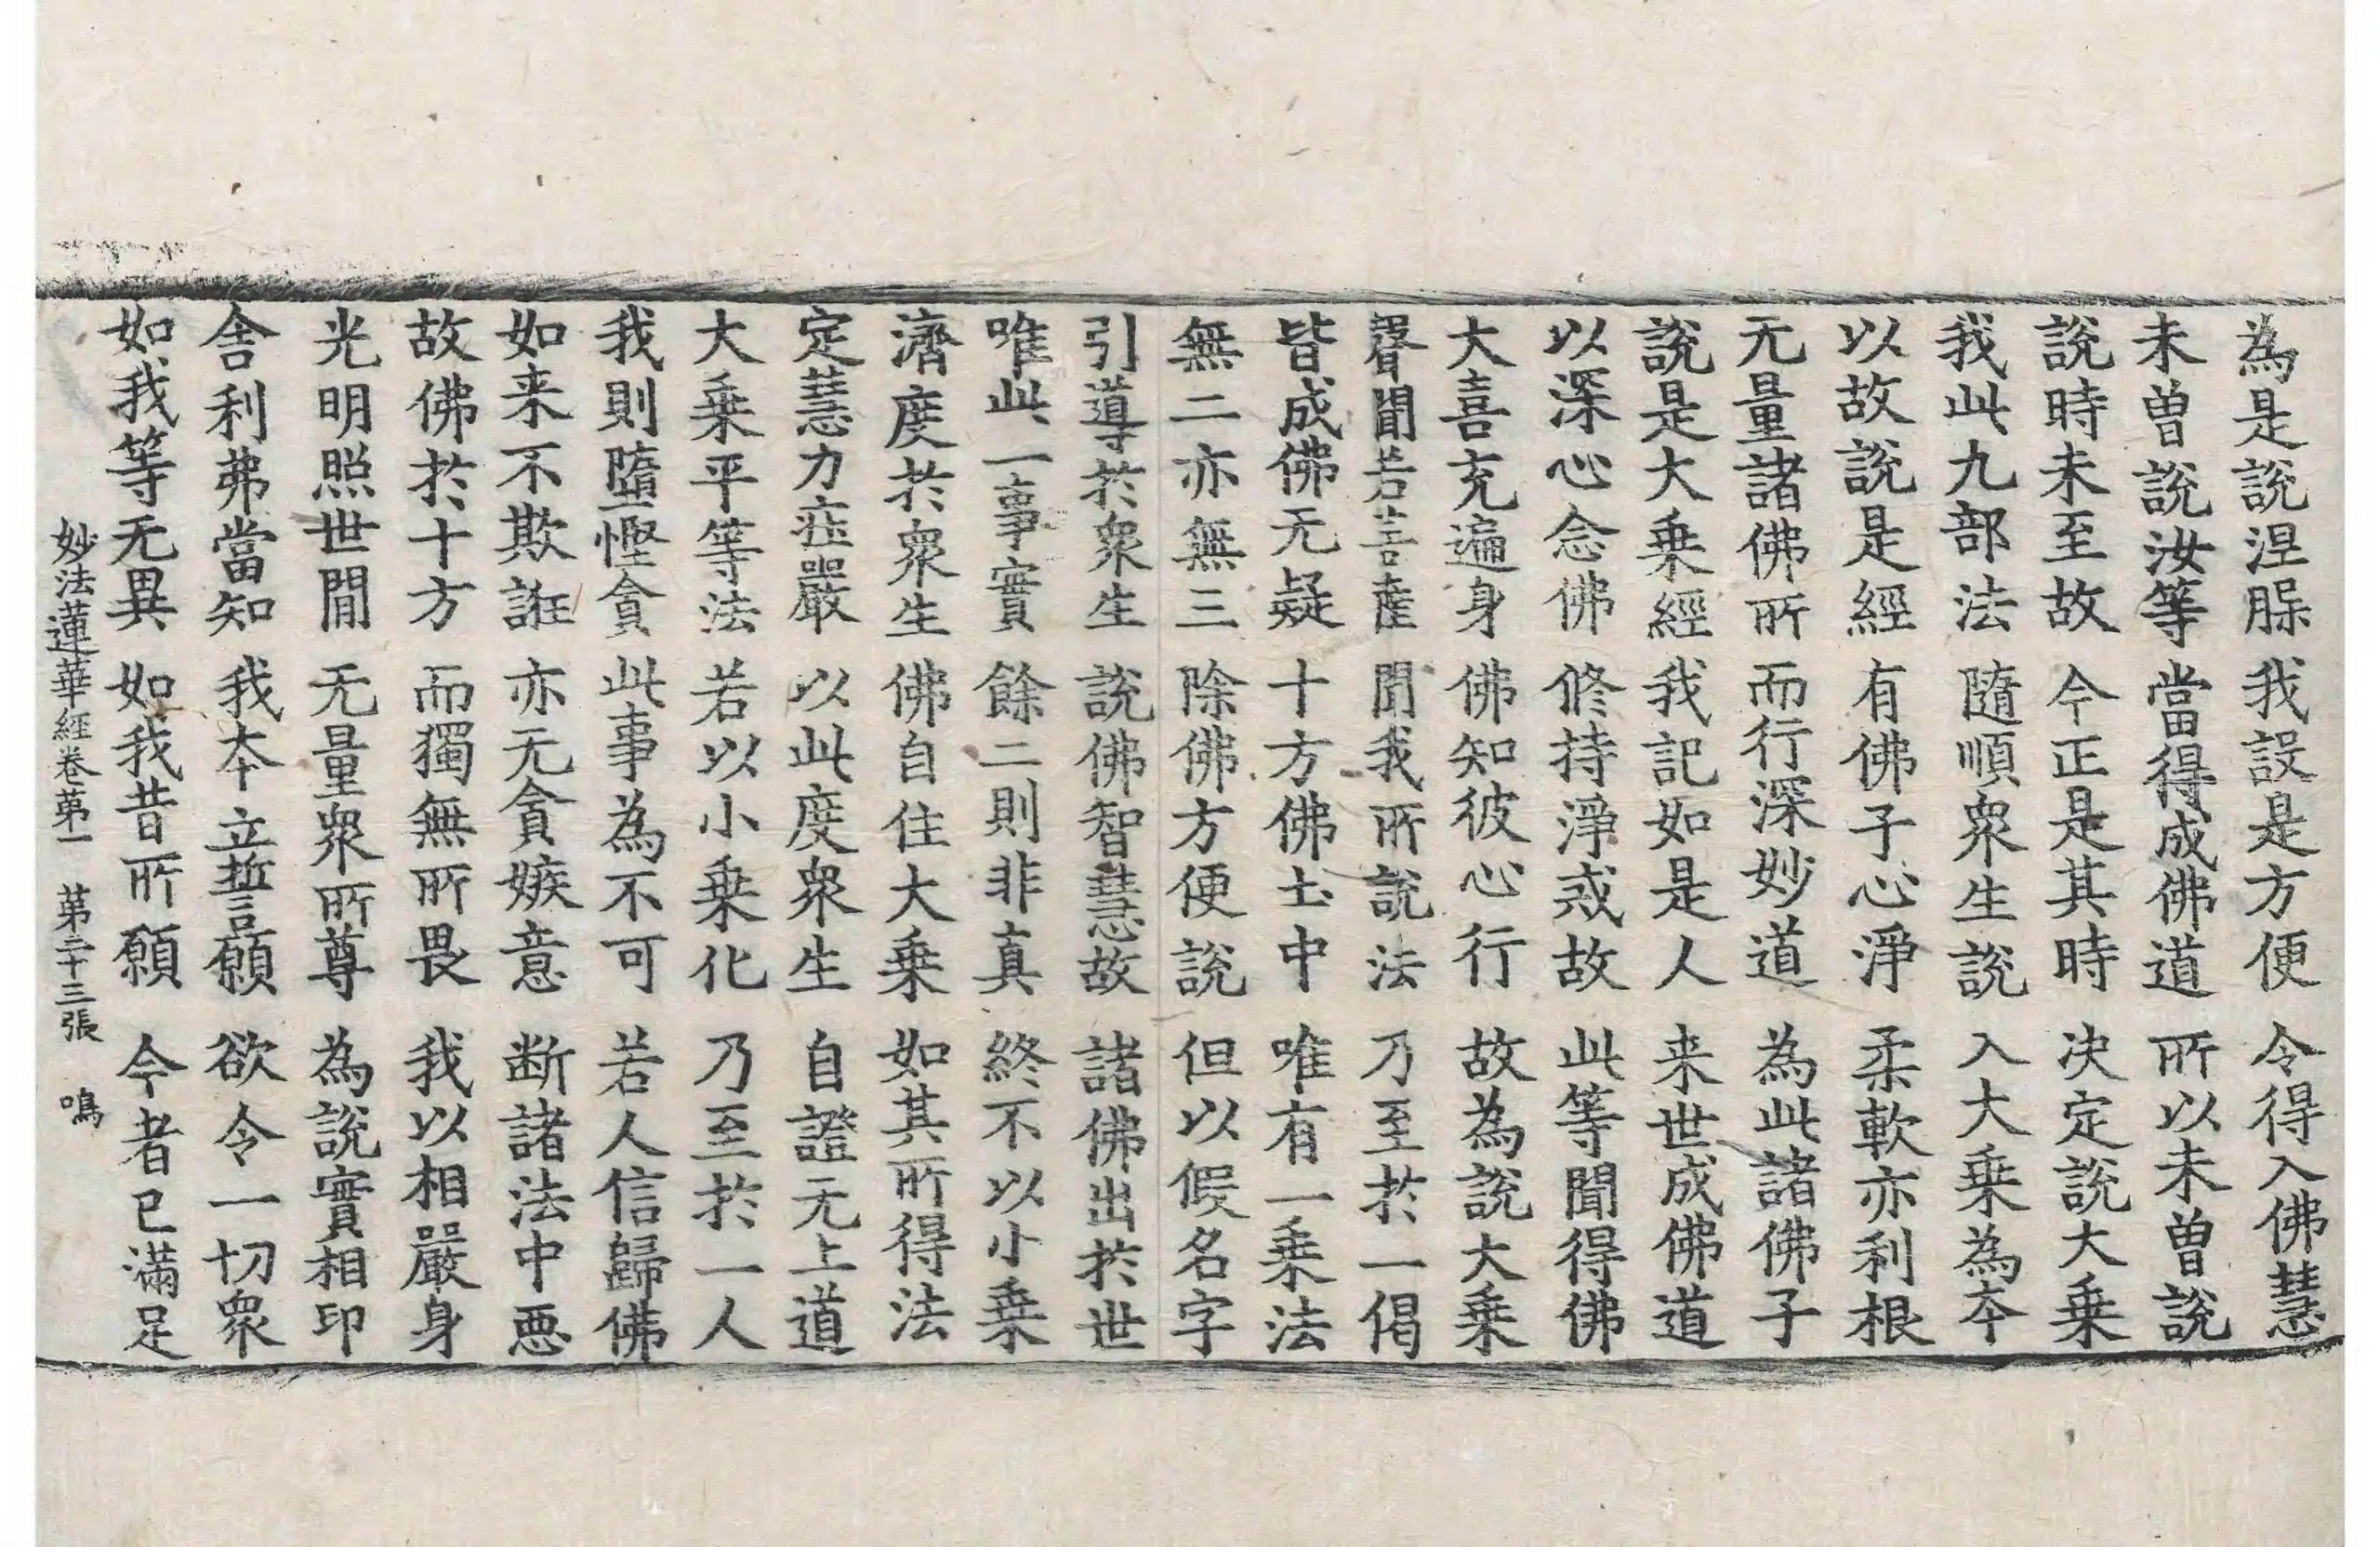 為是說涅脵 我設是方便 令得入佛慧
未曾說汝等 當得成佛道 所以未曾說
說時未至故 今正是其時 决定說大乗
我此九部法 隨順衆生說 入大乗為夲
以故說是經 有佛子心淨 柔軟亦利根
无量諸佛所 而行深妙道 為此諸佛子
說是大乗經 我記如是人 来世成佛道
以深心念佛 修持淨戒故 此等聞得佛
大喜充遍身 佛知彼心行 故為說大乗
聲聞若菩𦵏 聞我所說法 乃至於一偈
皆成佛无疑 十方佛土中 唯有一乗法
無二亦無三 除佛方便說 但以假名字
引導於衆生 說佛智慧故 諸佛出於世
唯此一事實 餘二則非真 終不以小乗
濟度於衆生 佛自住大乗 如其所得法
定慧力莊嚴 以此度衆生 自證无上道
大乗平等法 若以小乗化 乃至於一人
我則墮慳貪 此事為不可 若人信歸佛
如来不欺誑 亦无貪嫉意 断諸法中惡
故佛於十方 而獨無所畏 我以相嚴身
光明照世間 无量衆所尊 為說實相印
舍利弗當知 我夲立誓願 欲令一切衆
如我等无異 如我昔所願 今者已滿足
妙法蓮華經卷苐一 苐二十三張 鳴